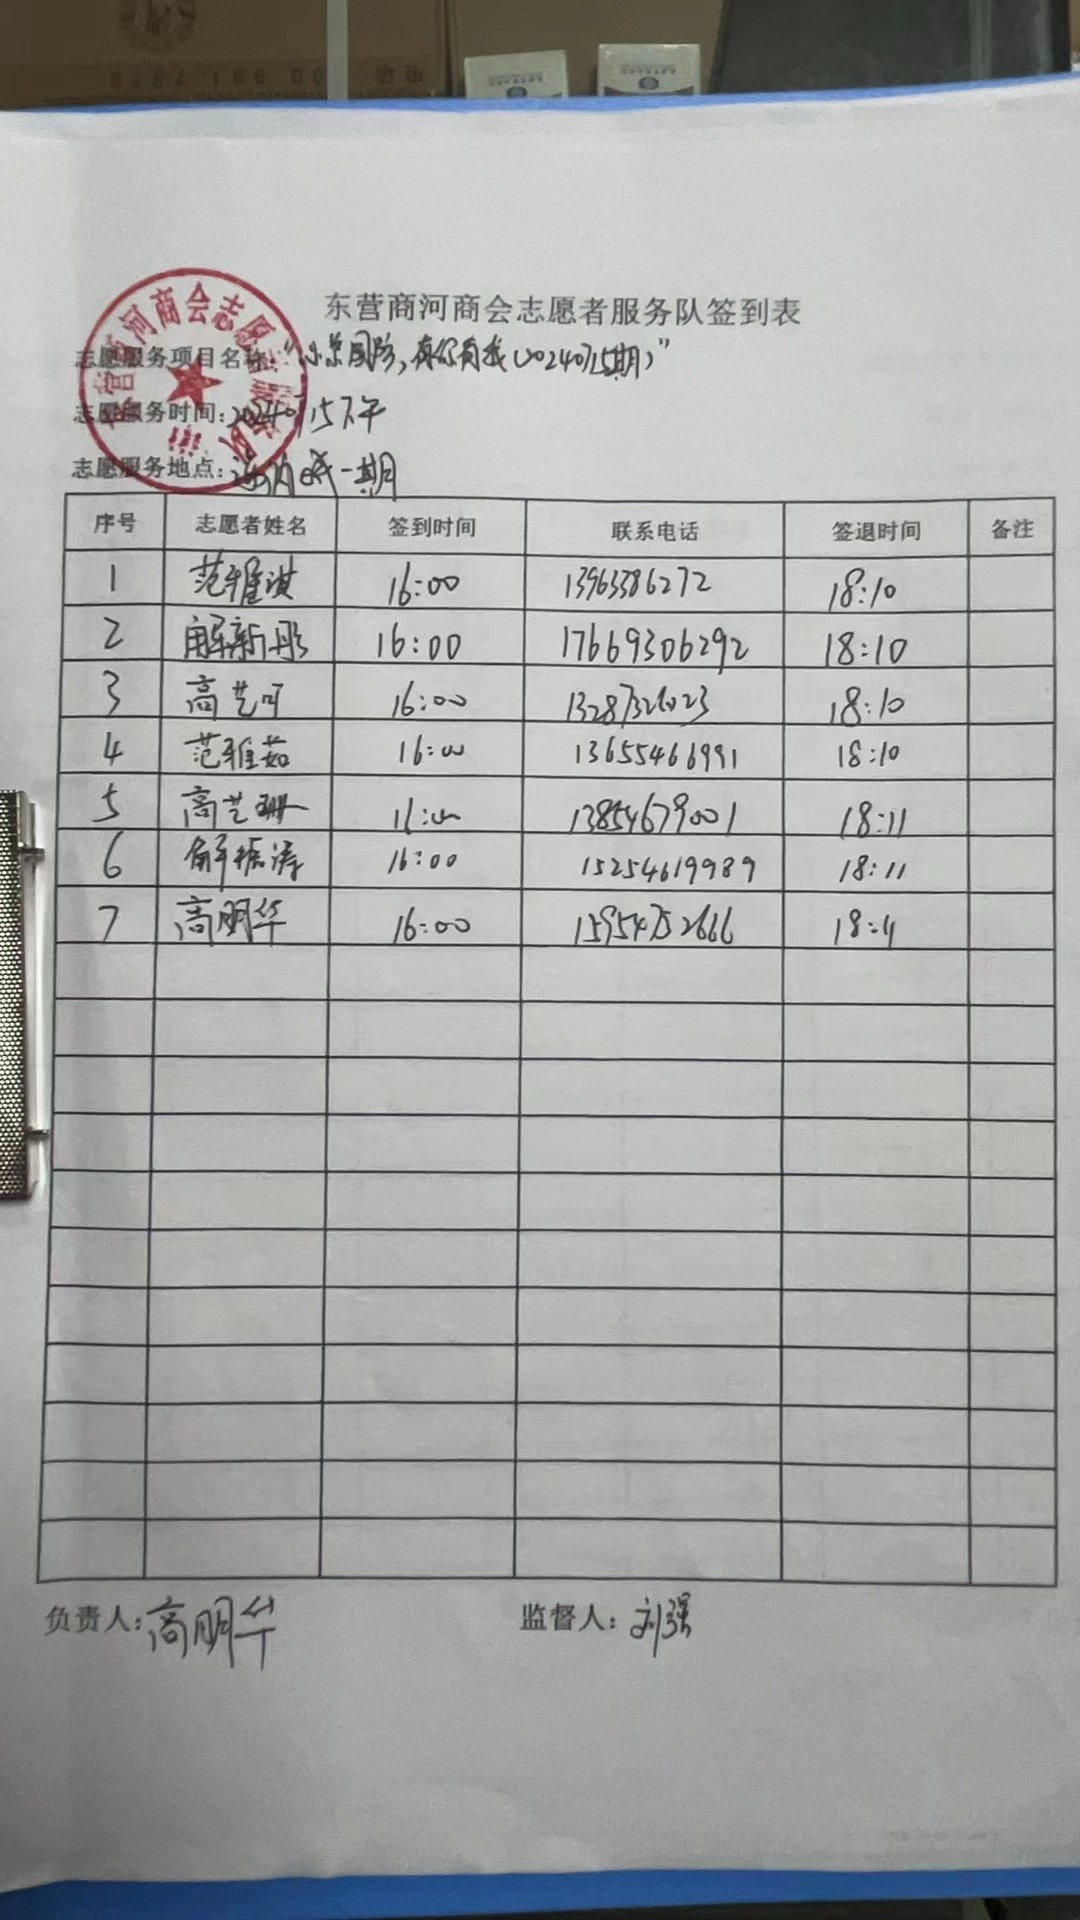 东营商河商会志愿者服务队签到表
志愿服务项目名称:"，有你有我(20240715期)"
志愿服务时间:20240715下午
志愿服务地点: 一期
序号 志愿者姓名 签到时间 联系电话 签退时间 备注
1 范雅淇 16:00 13963386272 18:10
2 解新彤 16:00 17669306292 18:10
3 高艺可 16:00 13287326023 18:10
4 范雅茹 16:00 13655466991 18:10
5 高艺珊 16:00 13854679001 18:11
6 解振涛 16:00 15254619989 18:11
7 高明华 16:00 15954752666 18:11
负责人:高明华 监督人:刘强